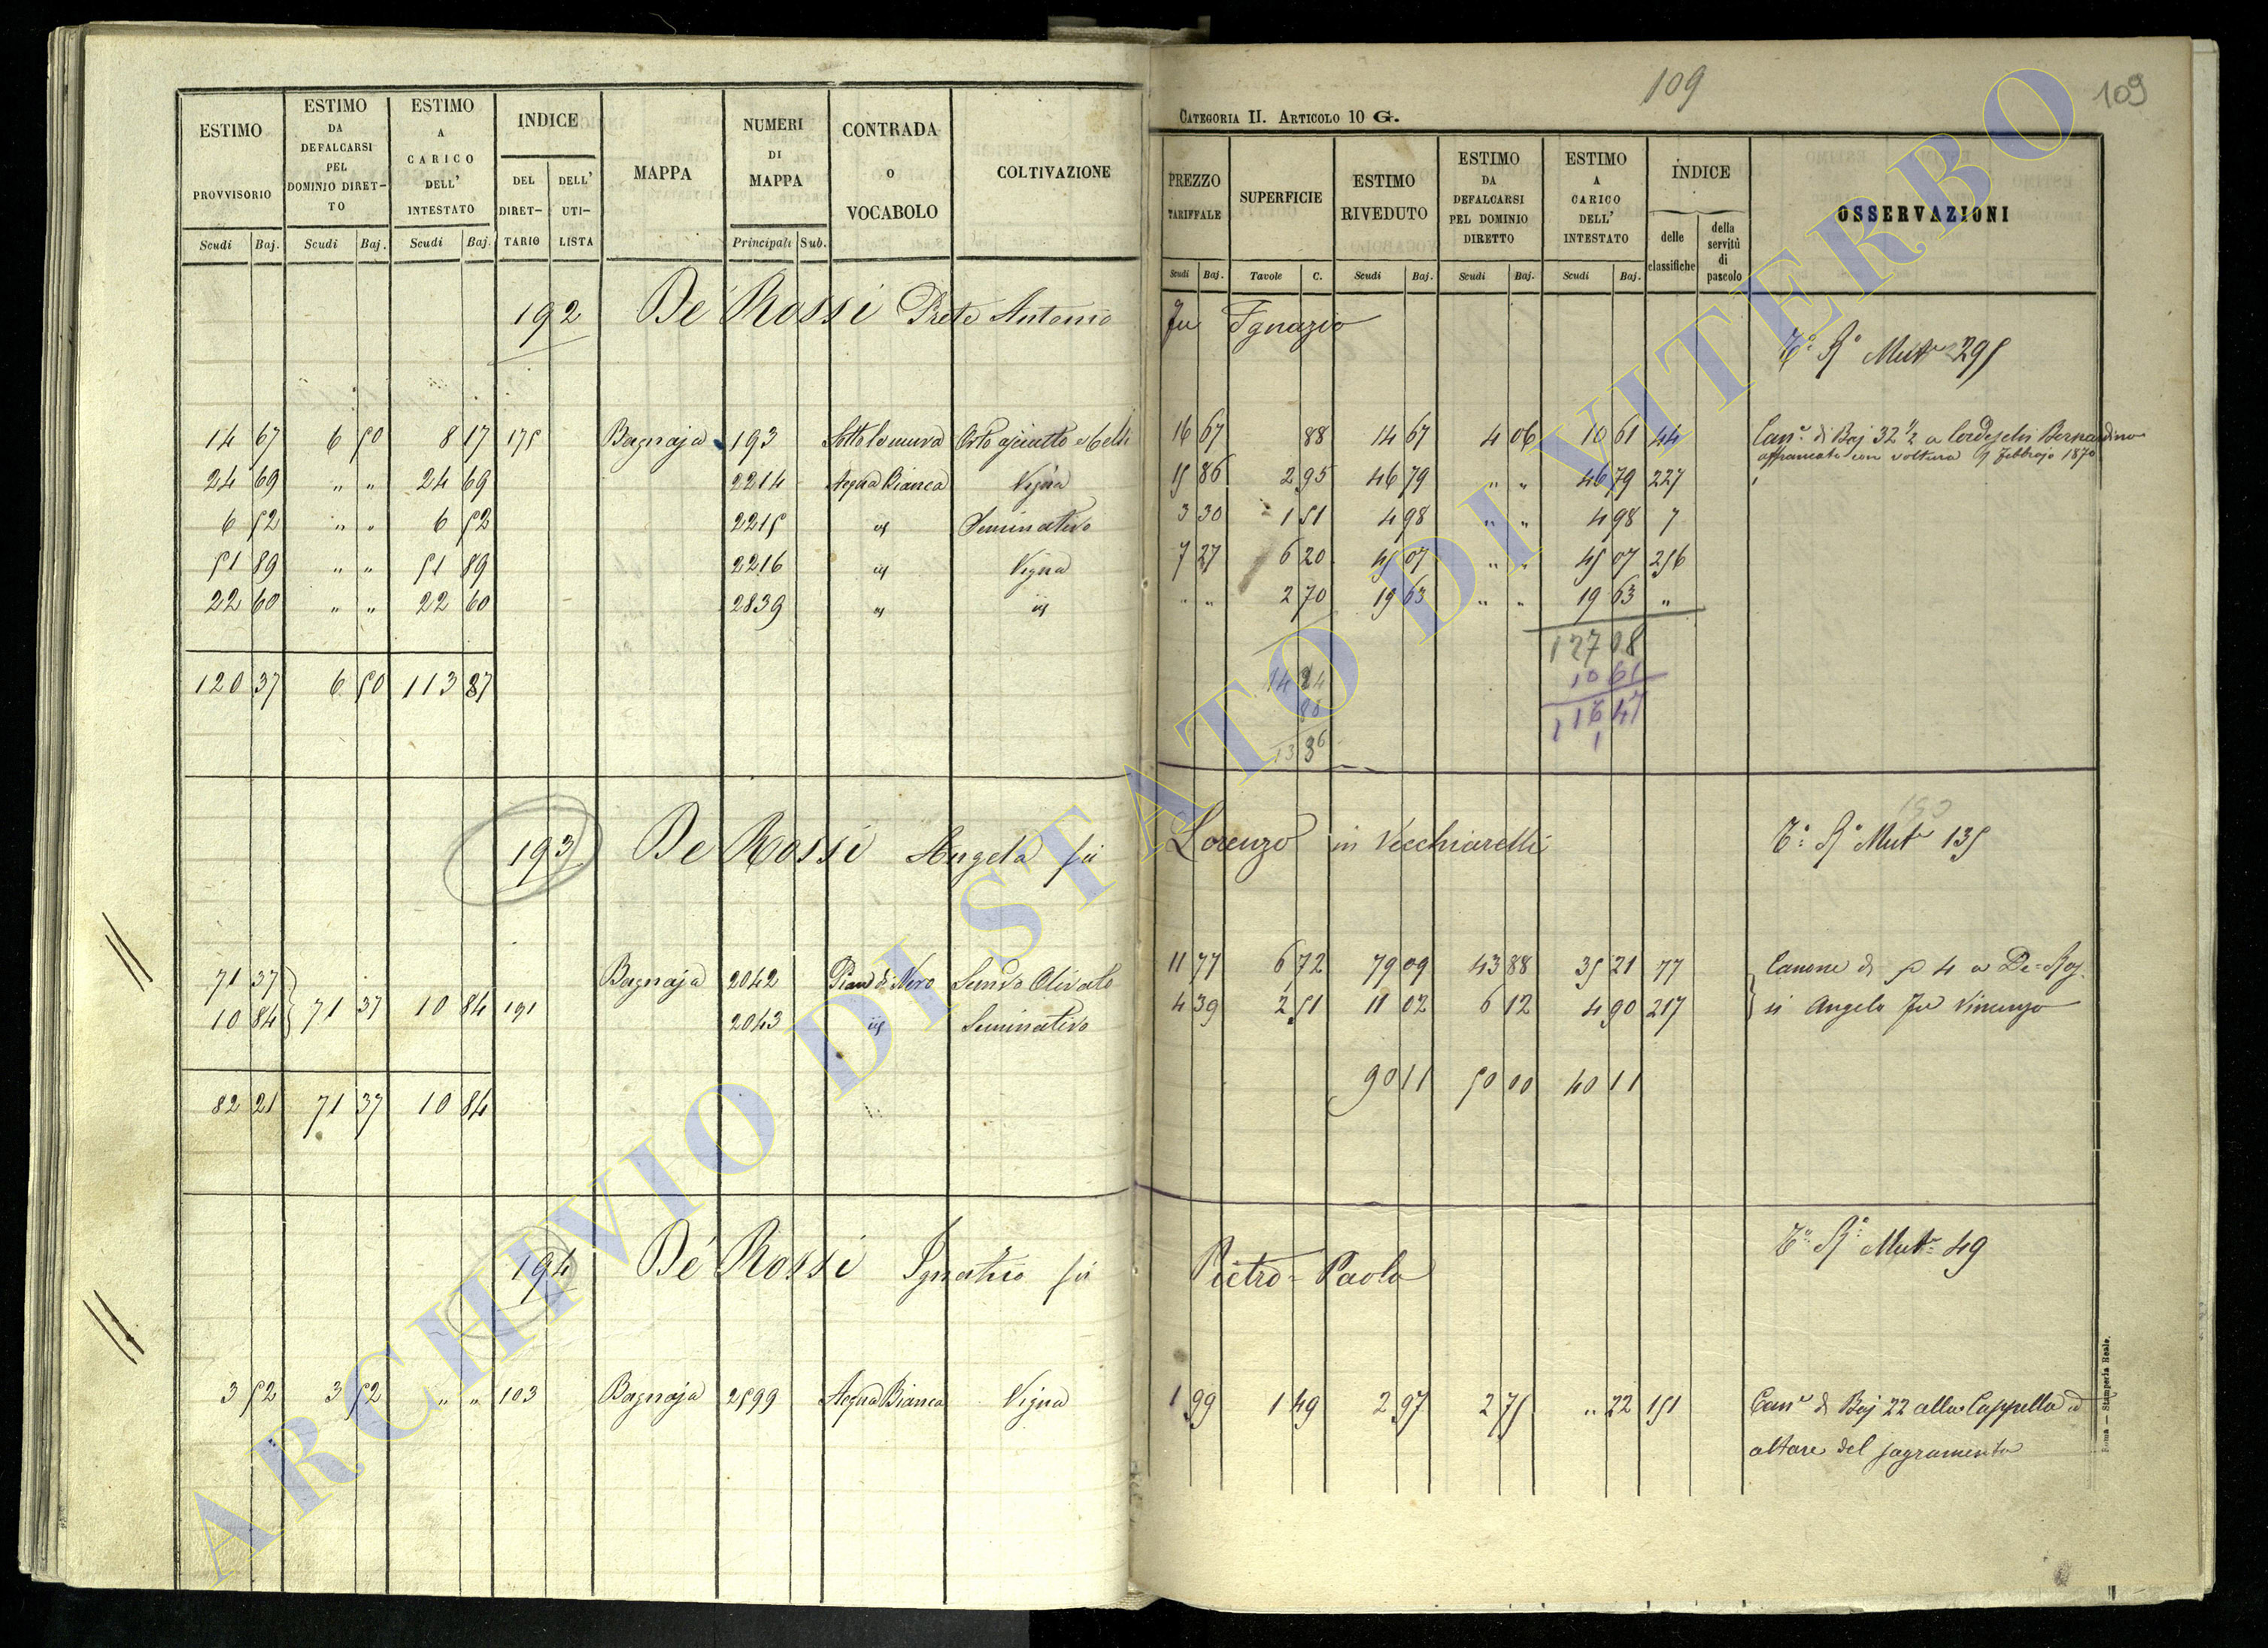 109
109
CATEGORIA II. ARTICOLO 10 G.
ESTIMO PROVVISORIO
ESTIMO DA DEFALCARSI PEL DOMINIO DIRETTO
ESTIMO A CARICO DELL' INTESTATO
INDICE
DEL DIRETTARIO
DELL' UTILISTA
MAPPA
NUMERI DI MAPPA
CONTRADA O VOCABOLO
COLTIVAZIONE
Scudi Baj. Scudi Baj. Scudi Baj. Principali Sub.
PREZZO TARIFFALE
SUPERFICIE
ESTIMO RIVEDUTO
ESTIMO DA DEFALCARSI PEL DOMINIO DIRETTO
ESTIMO A CARICO DELL' INTESTATO
INDICE
delle classifiche
della servitù di pascolo
OSSERVAZIONI
Scudi Baj. Tavole C. Scudi Baj. Scudi Baj. Scudi Baj.
192 De Rossi Prete Antonio fu Ignazio
Mut 295
14 67 6 50 8 17 175 Bagnaja 193 Sotto le mura 16 67 88 14 67 4 06 10 61 44 Can. di Baj 32 1/2 a Cordeschi Bernardino
affrancato con voltura 9 Febbrajo 1870
24 69 " " 24 69 2214 Acqua Bianca Vigna 15 86 2 95 46 79 " " 46 79 227
6 52 " " 6 52 2215 id Seminativo 3 30 1 51 4 98 " " 4 98 7
51 89 " " 51 89 2216 id Vigna 7 27 6 20 45 07 " " 45 07 256
22 60 " " 22 60 2839 id id " " 2 70 19 63 " " 19 63 "
127 08
120 37 6 50 113 87 14 24 10 61
88 116 47
13 36
193 De Rossi Angela fu Lorenzo in Vecchiarelli
Mut 135
71 37 Bagnaja 2042 Pian di Nero Semvo Olivato 11 77 6 72 79 09 43 88 35 21 77 Canone di 4 a De Ros
10 84 71 37 10 84 191 2043 id Seminativo 4 39 2 51 11 02 6 12 4 90 217 si Angelo fu Vincenzo
90 11 50 00 40 11
82 21 71 37 10 84
194 De Rossi Ignazio fu Pietro-Paolo
Mut 49
3 52 3 52 " " 103 Bagnaja 2599 Acqua Bianca Vigna 1 99 1 49 2 97 2 75 " 22 151 Can di Baj 22 alla Cappella
altare del sagramento
Roma — Stamperia Reale.
ARCHIVIO DI STATO DI VITERBO